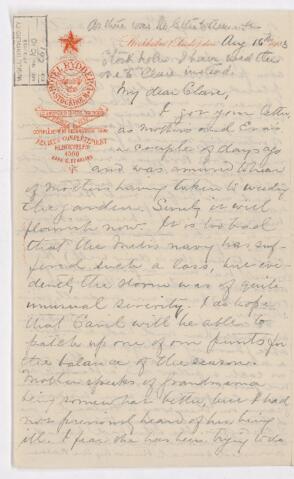 As there was no letter to Aunt
Stockholm I have used this
one to Clare instead.
Stockholm Aug 16th 1903
HOTEL RYDBERG
STOCKHOLM
My dear Clare,
I got your letter,
as mother's and Eva's
a couple of days ago
and was amused to hear
of mother having taken to weeding
the garden. Surely it will
flourish now. It is too bad
that the Metis navy has suf-
fered such a loss, but evi-
dently the storm was of quite
unusual severity. I do hope
that will be able to
patch up one of our punts for
the balance of the season.
Mother speaks of grandmama
being somewhat better, but I had
not previously heard of her being
ill. I fear she has been trying to do